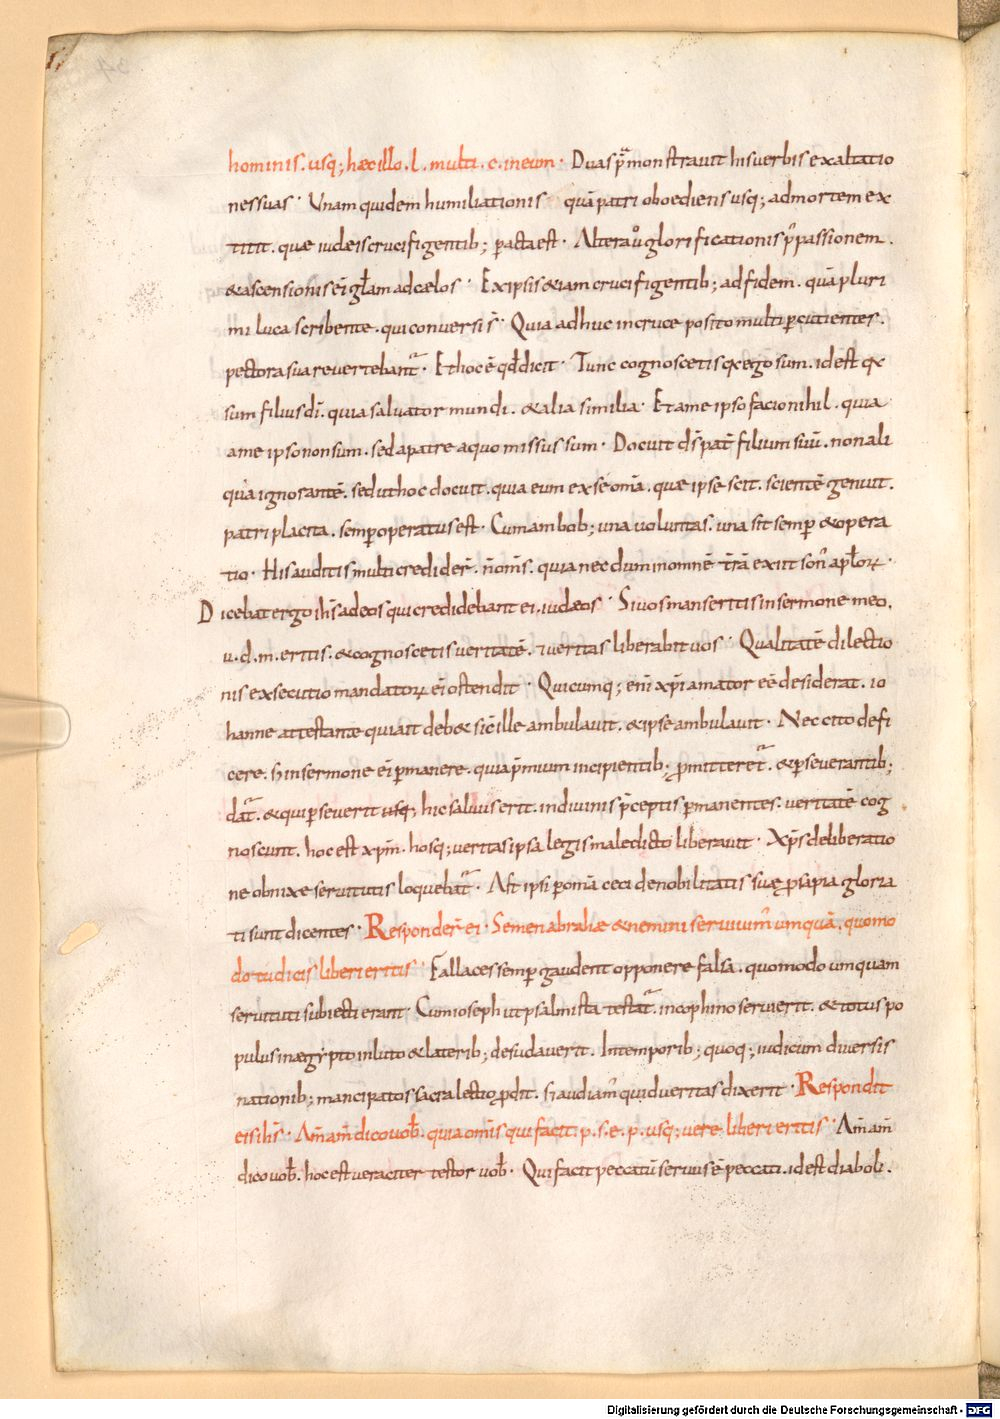 hominis. usq; hæc illo. l. multi. c. in eum. Duas p̄monstravit his verbis exaltatio
nes suas. Unam quidem humiliationis quā patri oboediens usq; ad mortem ex
titit. quæ iudeis crucifigentib; ꝑacta est. Altera ů glorificationis p̊ passionem.
& ascensionis ei głam ad cælos. Ex ipsis &iam crucifigentib; ad fidem. quā pluri
mi luca scribente. qui conversi s̄. Quia adhuc in cruce posito multi ꝑcutientes.
pectora sua revertebant̄. Et hoc ē qd̄ dicit. Tunc cognoscetis qa ego sum. id est qa
sum filius dī. quia salvator mundi. & alia similia. Et a me ipso facio nihil. quia
a me ipso non sum. sed a patre a quo missus sum. Docuit ds̄ pat̄ filium suū. non ali
qua ignorantē. sed ut hoc docuit. quia eum ex se omā. quæ ipse scit. scientē genuit.
patri placita. semꝑ operatus est. Cum ambob; una voluntas. una sit semꝑ & opera
tio. His auditis multi credider̄. n̄ om̄s. quia necdum in omnē t̄rā exiit son̄ apłoꝝ.
Dicebat ergo ih̄s ad eos qui credidebant ei iudæos. Si vos manseritis in sermone meo.
u. d. m. eritis. & cognoscetis veritatē. ⁊ veritas liberabit vos. Qualitatē dilectio
nis exsecutio mandatoꝝ ei ostendit. Quicumq; enī xp̄i amator eē desiderat. io
hanne attestante qui ait deb& sic̄ ille ambulavit. & ipse ambulavit. Nec cito defi
cere. sz in sermone ei ꝑmanere. quia p̄mium incipientib. ꝓmitteret̄. & ꝑseverantib;
dat̄. & qui ꝑseverit usq; hic salvus erit. in divinis p̄ceptis ꝑmanentes. veritatē cog
noscunt. hoc est xp̄m. hosq; veritas ipsa legis maledicto liberavit. Xp̄s de liberatio
ne obnixe servitutis loquebat̄. Ast ipsi ꝑ omā ceci de nobilitatis suæ ꝓsapia gloria
ti sunt dicentes. Responder̄ ei. Semen abrahæ & nemini servivim̄ umquā. quomo
do tu dicis liberi eritis. Fallaces semꝑ gaudent opponere falsa. quomodo umquam
servituti subiecti erant. Cum ioseph ut psalmista testat̄. in cophino servierit. & totus po
pulus in ægypto in luto & laterib; desudaverit. In temporib; quoq; iudicum diversis
nationib; mancipatos sacra lectio ꝓdit. sz audiam̄ quid veritas dixerit. Respondit
eis ih̄s. Am̄ am̄ dico vob̄. quia om̄is qui facit. p. s. e. p. usq; vere liberi eritis. Am̄ am̄
dico vob̄. hoc est veraciter testor vob̄. Qui facit peccatū servus ē peccati. id est diaboli.
Digitalisierung gefördert durch die Deutsche Forschungsgemeinschaft - DFG